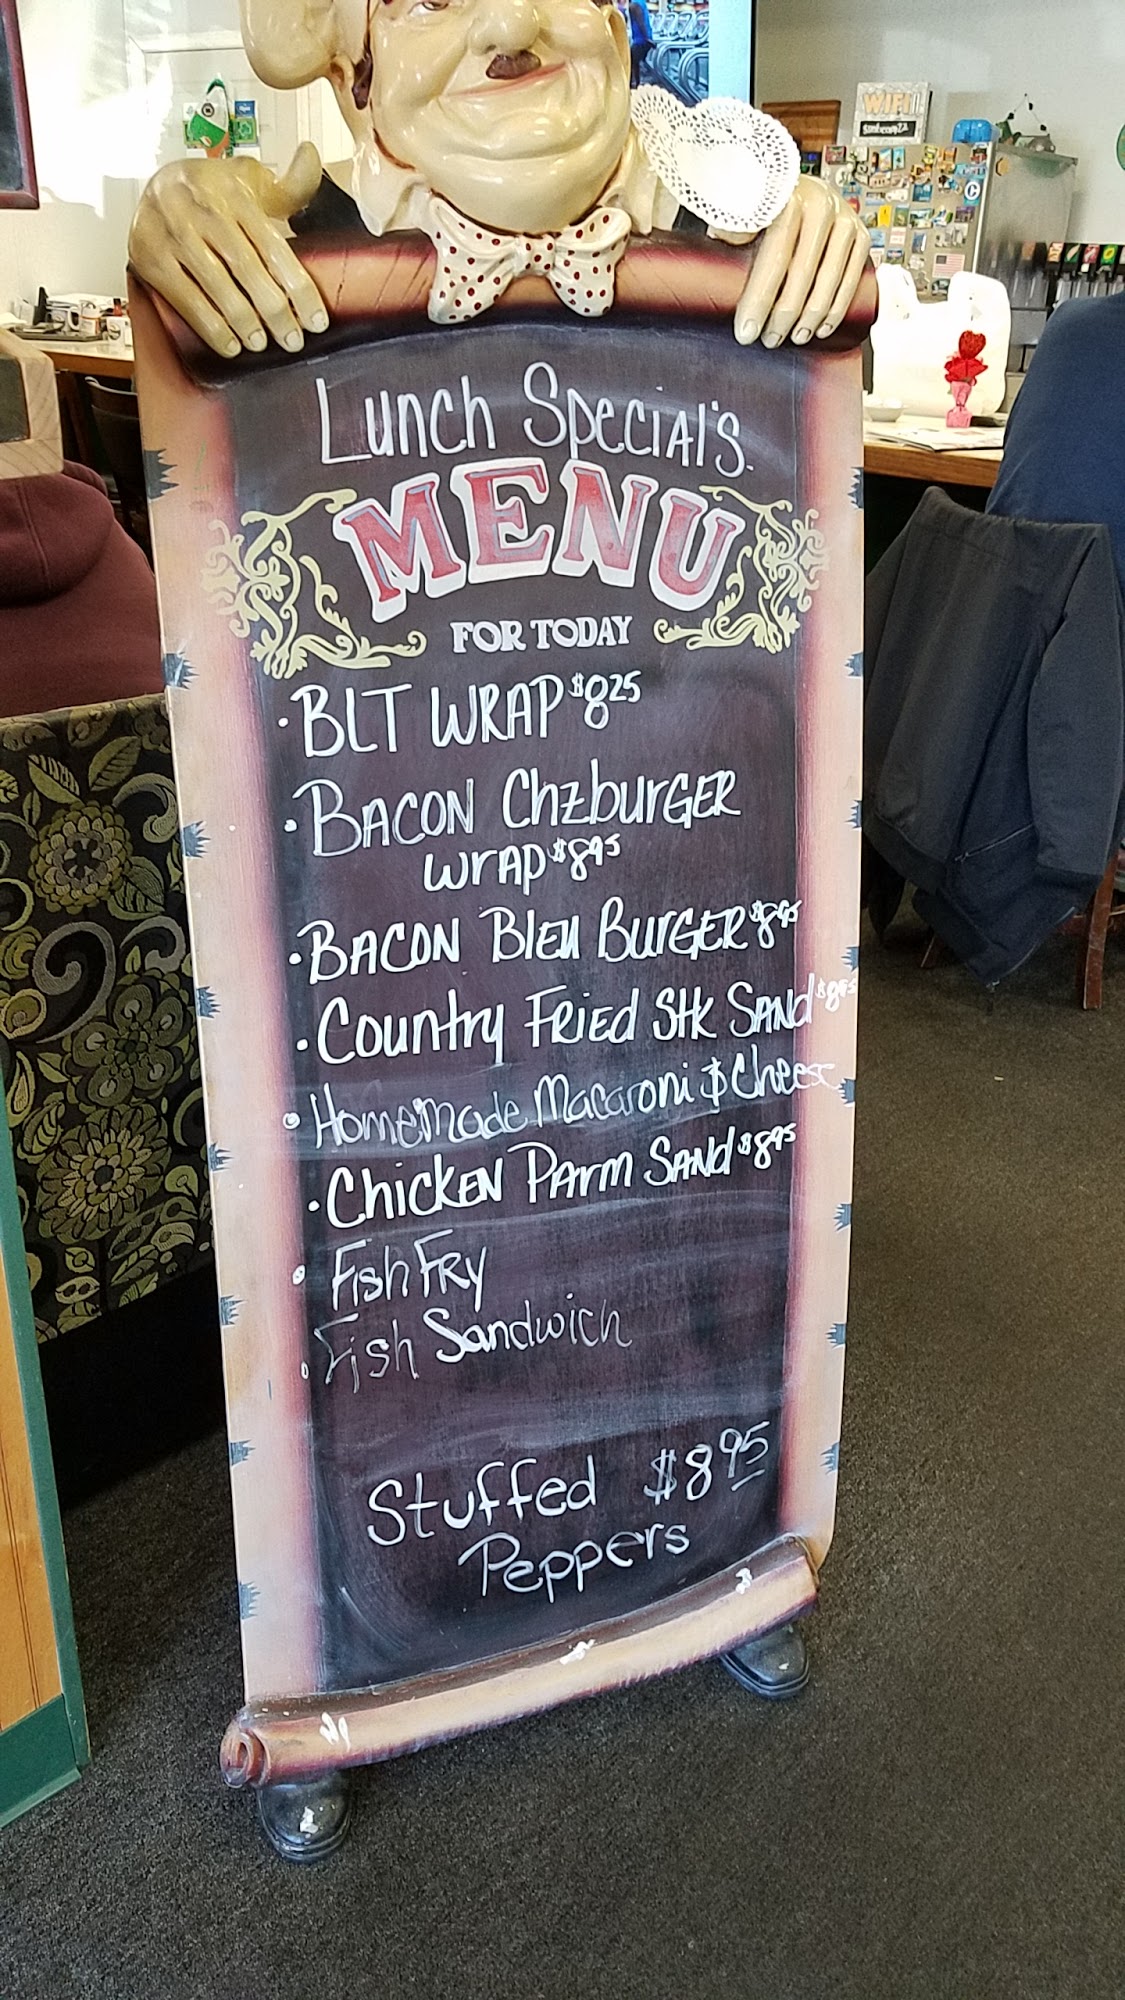 WiFi
Lunch Special's
MENU
FOR TODAY
· BLT WRAP $8.25
· BACON ChzburGER
WrAP $8.95
· BACON Bleu BurGER $8.95
· Country Fried Stk SANd $8.95
· Homemade Macaroni & Cheese
· ChickEN PArm SANd $8.95
· Fish FRY
· Fish Sandwich
Stuffed $8.95
Peppers